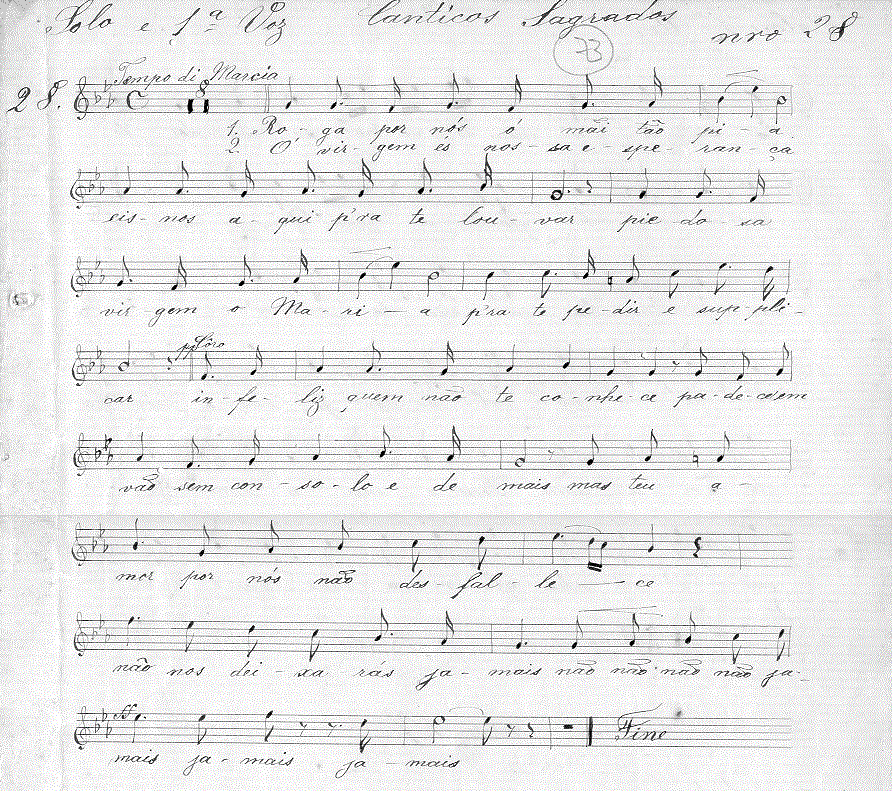 Solo e 1ª Voz Canticos Sagrados nro 28
73
28. Tempo di Marcia
8
1. Ro-ga por nós ó mãi tão pi-a
2. Ó vir-gem és nos-sa e-spe-ran-ça
eis-nos a-qui p'ra te lou-var pie-do-sa
vir-gem o Ma-ri-a p'ra te pe-dir e sup-pli-
pp Côro
car in-fe-liz quem não te co-nhe-ce pa-de-ce em
vão sem con-so-lo e de mais mas teu a-
mor por nós não des-fal-le-ce
não nos dei-xa rás ja-mais não não não não ja-
ff
mais ja-mais ja-mais
Fine